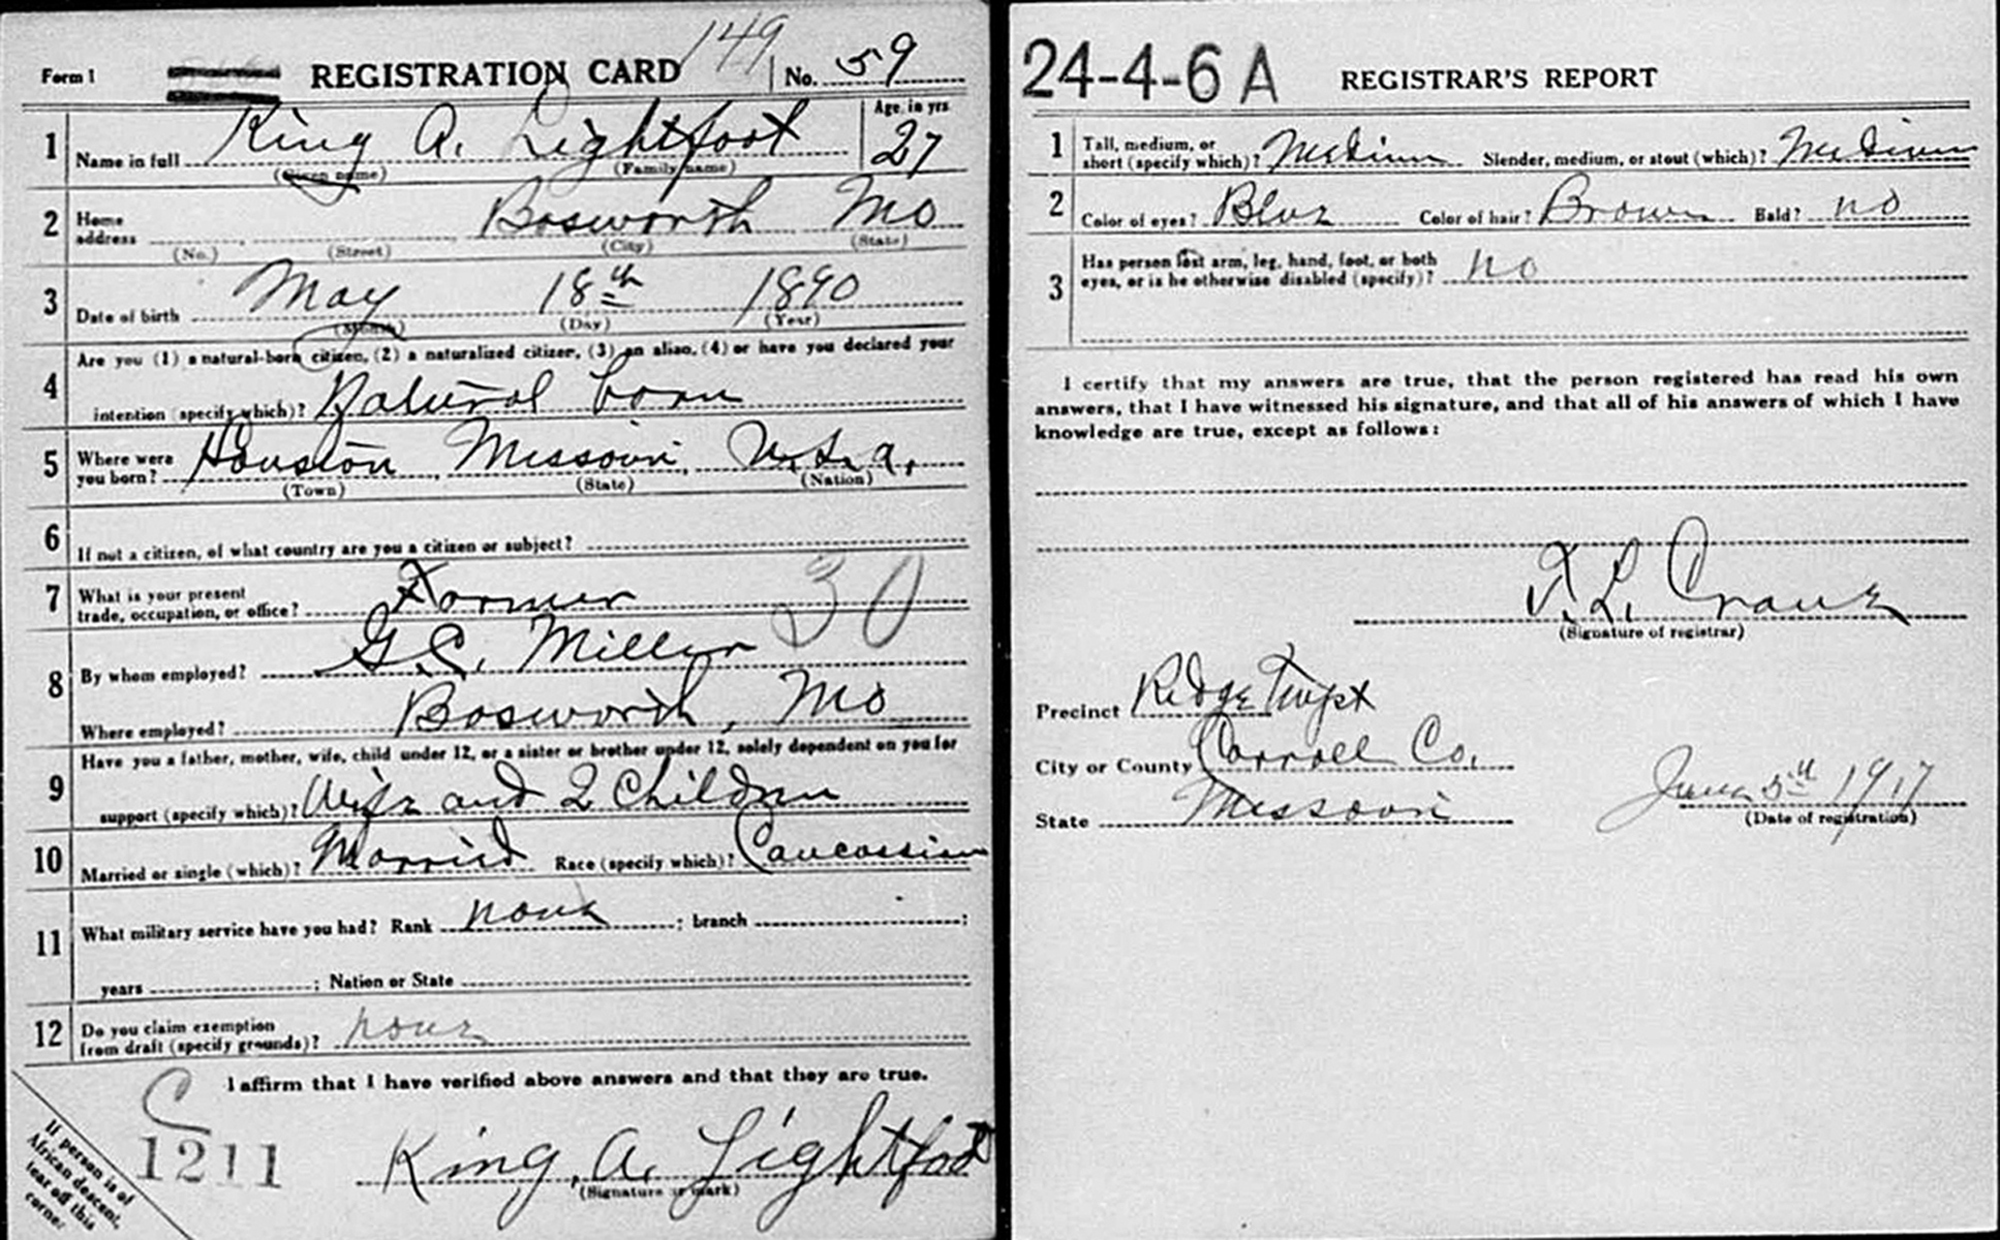 Form 1 REGISTRATION CARD 149 No. 59
1 Name in full King A. Lightfoot Age, in yrs 27
(Given name) (Family name)
2 Home address Bosworth Mo
(No.) (Street) (City) (State)
3 Date of birth May 18th 1890
(Month) (Day) (Year)
Are you (1) a natural-born citizen, (2) a naturalized citizen, (3) an alien, (4) or have you declared your
4 intention (specify which)? Natural born
5 Where were you born? Houston Missouri, U.S.A.
(Town) (State) (Nation)
6 If not a citizen, of what country are you a citizen or subject?
7 What is your present trade, occupation, or office? Farmer 30
8 By whom employed? G.C. Miller
Where employed? Bosworth, Mo
Have you a father, mother, wife, child under 12, or a sister or brother under 12, solely dependent on you for
9 support (specify which)? Wife and 2 Children
10 Married or single (which)? Married Race (specify which)? Caucassian
11 What military service have you had? Rank none ; branch ;
years ; Nation or State
12 Do you claim exemption from draft (specify grounds)? none
I affirm that I have verified above answers and that they are true.
C
1211
King A. Lightfoot
(Signature or mark)
If person is of
African descent,
tear off this
corner
24-4-6 A REGISTRAR'S REPORT
1 Tall, medium, or short (specify which)? Medium Slender, medium, or stout (which)? Medium
2 Color of eyes? Blue Color of hair? Brown Bald? no
3 Has person lost arm, leg, hand, foot, or both
eyes, or is he otherwise disabled (specify)? no
I certify that my answers are true, that the person registered has read his own
answers, that I have witnessed his signature, and that all of his answers of which I have
knowledge are true, except as follows:
L. Crane
(Signature of registrar)
Precinct Ridge Twpst
City or County Carroll Co.
State Missouri June 5th 1917
(Date of registration)